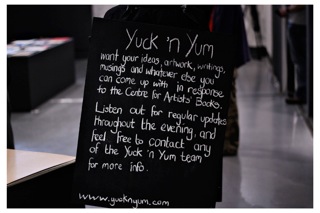 Yuck 'n Yum
want your ideas, artwork, writings,
musings and whatever else you
can come up with in response
to the Centre for Artists' Books.
Listen out for regular updates
throughout the evening, and
feel free to contact any
of the Yuck 'n Yum team
for more info.
www.yucknyum.com